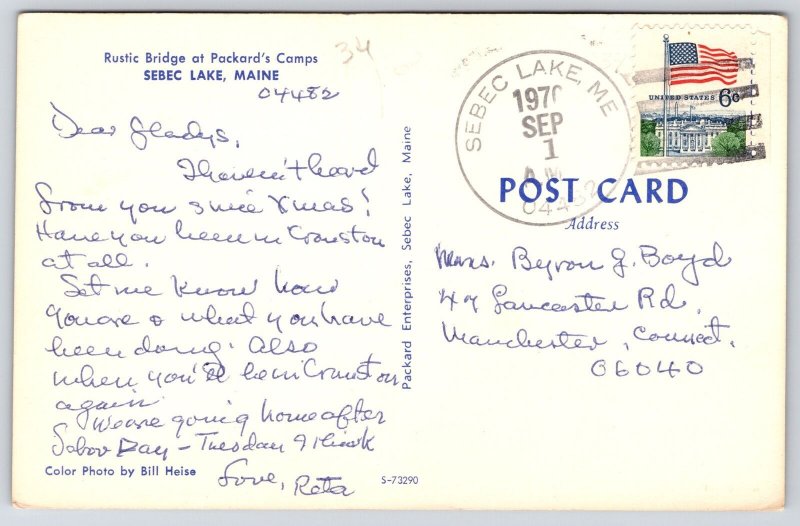 Rustic Bridge at Packard's Camps
SEBEC LAKE, MAINE
04482
34
Dear Gladys,
I haven't heard
from you since Xmas!
Have you been in Cranston
at all.
Let me know how
you are & what you have
been doing. Also
when you'll be in Cranston
again.
We are going home after
Labor Day - Tuesday I think
Love, Reta
Color Photo by Bill Heise
S-73290
Packard Enterprises, Sebec Lake, Maine
SEBEC LAKE, ME
1970
SEP
1
AM
04482
UNITED STATES 6c
POST CARD
Address
Mrs. Byron J. Boyd
47 Lancaster Rd.
Manchester, Connect.
06040